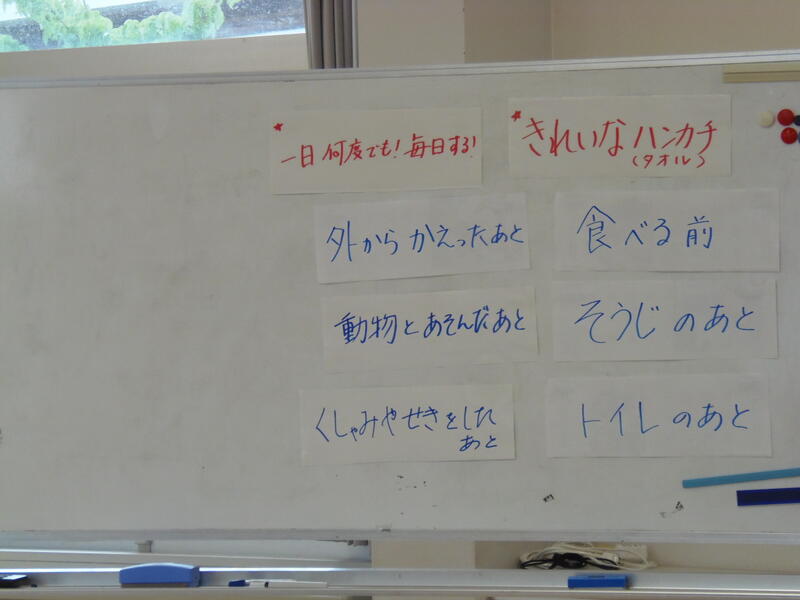 ★一日 何度でも！毎日する！
★きれいなハンカチ
（タオル）
外からかえったあと
食べる前
動物とあそんだあと
そうじのあと
くしゃみやせきをした
あと
トイレのあと